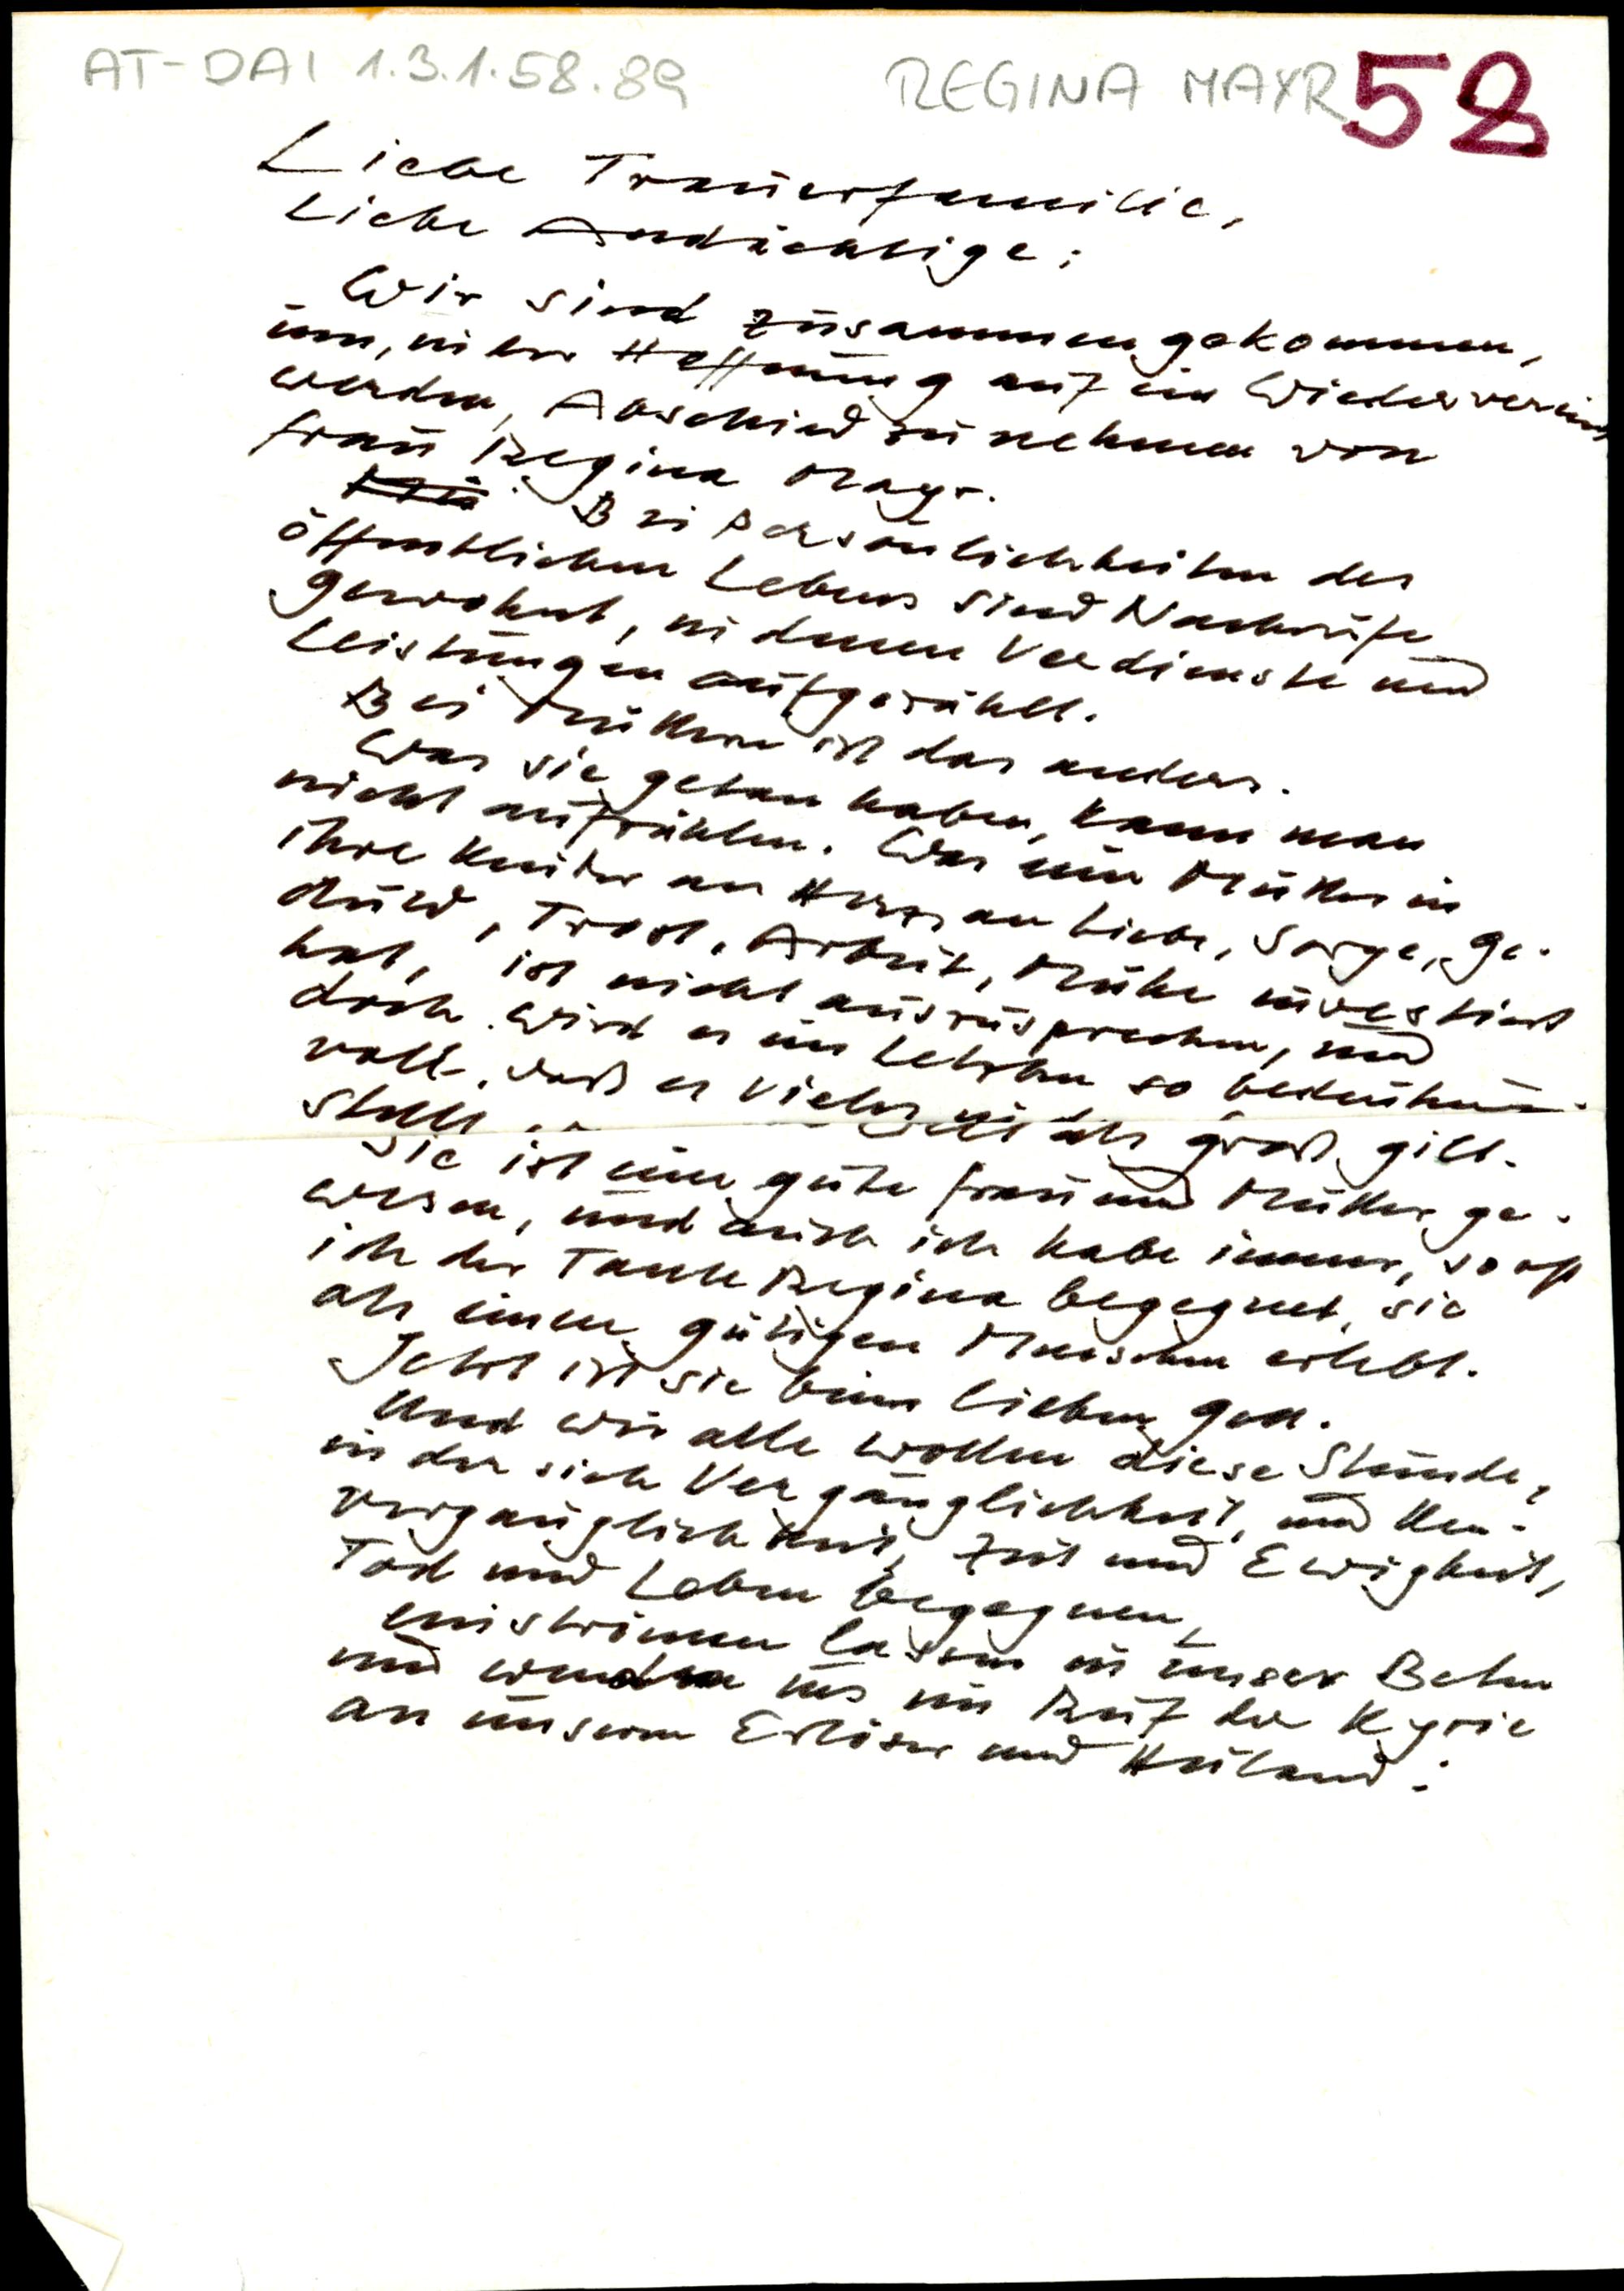 AT-DAI 1.3.1.58.89 REGINA MAYR 58
Liebe Trauerfamilie,
Liebe Andächtige:
Wir sind zusammengekommen,
um, in der Hoffnung auf ein Wiederverein
werden, Abschied zu nehmen von
Frau Regina Mayr.
Bei Persönlichkeiten des
öffentlichen Lebens sind Nachrufe
gewohnt, in denen Verdienste und
Leistungen aufgezählt.
Bei Müttern ist das anders.
Was sie getan haben, kann man
nicht aufzählen. Was eine Mutter in
ihre Kinder an Herz, an Liebe, Sorge, Ge-
duld, Trost, Arbeit, Mühe investiert
hat, ist nicht auszusprechen, und
doch wird es im Letzten so bedeutungs-
voll, daß es vieles als groß gilt.
Sie ist eine gute Frau und Mutter ge-
wesen, und auch ich habe immer, so oft
ich der Tante Regina begegnet, sie
als einen gütigen Menschen erlebt.
Jetzt ist sie beim lieben Gott.
Und wir alle wollen diese Stunde,
in der sich Vergänglichkeit und Un-
vergänglichkeit, Zeit und Ewigkeit,
Tod und Leben begegnen,
einströmen lassen in unser Beten
und wenden uns im Ruf des Kyrie
an unseren Erlöser und Heiland: